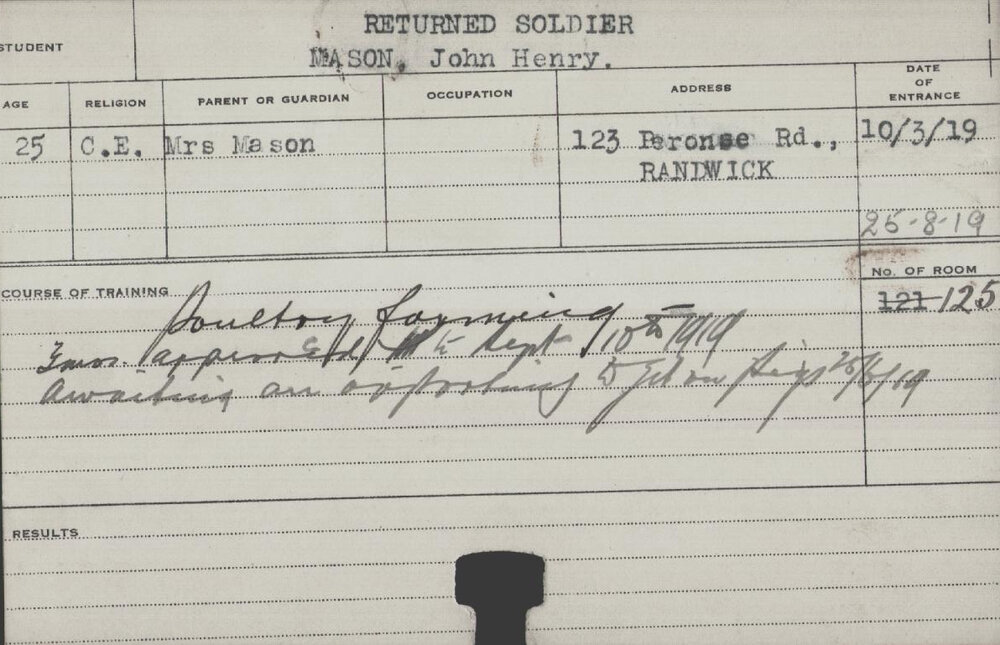 RETURNED SOLDIER
STUDENT
MASON, John Henry.
AGE RELIGION PARENT OR GUARDIAN OCCUPATION ADDRESS DATE OF ENTRANCE
25 C.E. Mrs Mason 123 Peronse Rd., 10/3/19
RANDWICK
25-8-19
No. OF ROOM
COURSE OF TRAINING
121 125
Poultry farming
approved to Sept 10th 1919
Awaiting an opportunity to get on
RESULTS